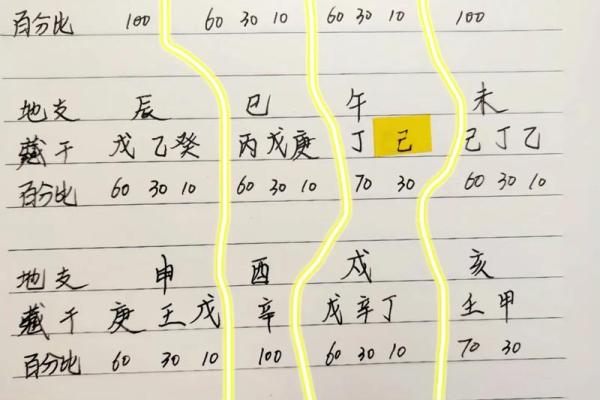 百分比 100 60 30 10 60 30 10 100
地支 辰 巳 午 未
藏干 戊 乙 癸 丙 戊 庚 丁 己 己 丁 乙
百分比 60 30 10 60 30 10 70 30 60 30 10
地支 申 酉 戌 亥
藏干 庚 壬 戊 辛 戊 辛 丁 壬 甲
百分比 60 30 10 100 60 30 10 70 30